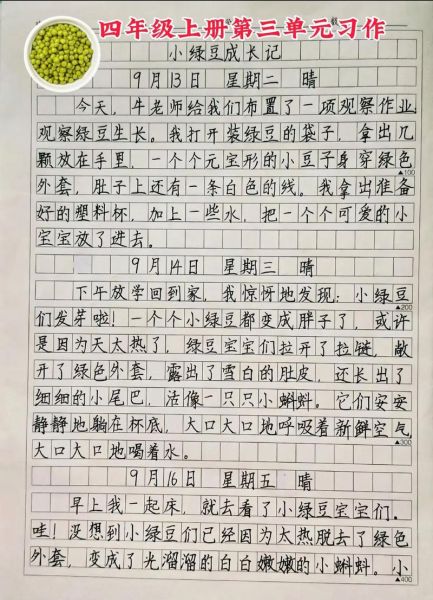 四年级上册第三单元习作
小绿豆成长记
9月13日 星期二 晴
今天，牛老师给我们布置了一项观察作业
观察绿豆生长。我打开装绿豆的袋子，拿出几
颗放在手里，一个个元宝形的小豆子身穿绿色
外套，肚子上还有一条白色的线。我拿出准备
▲100
好的塑料杯，加上一些水，把一个个可爱的小
宝宝放了进去。
9月14日 星期三 晴
下午放学回到家，我惊讶地发现：小绿豆
▲200
们发芽啦！一个个小绿豆都变成胖子了，或许
是因为天太热了，绿豆宝宝们拉开了拉链，敞
开了绿色外套，露出了雪白的肚皮，还长出了
细细的小尾巴，活像一只只小蝌蚪。它们安安
静静地躺在杯底，大口大口地呼吸着新鲜空气
▲300
大口大口地喝着水。
9月16日 星期五 晴
早上我一起床，就去看了小绿豆宝宝们。
哇！没想到小绿豆们已经因为太热脱去了绿色
外套，变成了光溜溜的白白嫩嫩的小蝌蚪。小
▲400